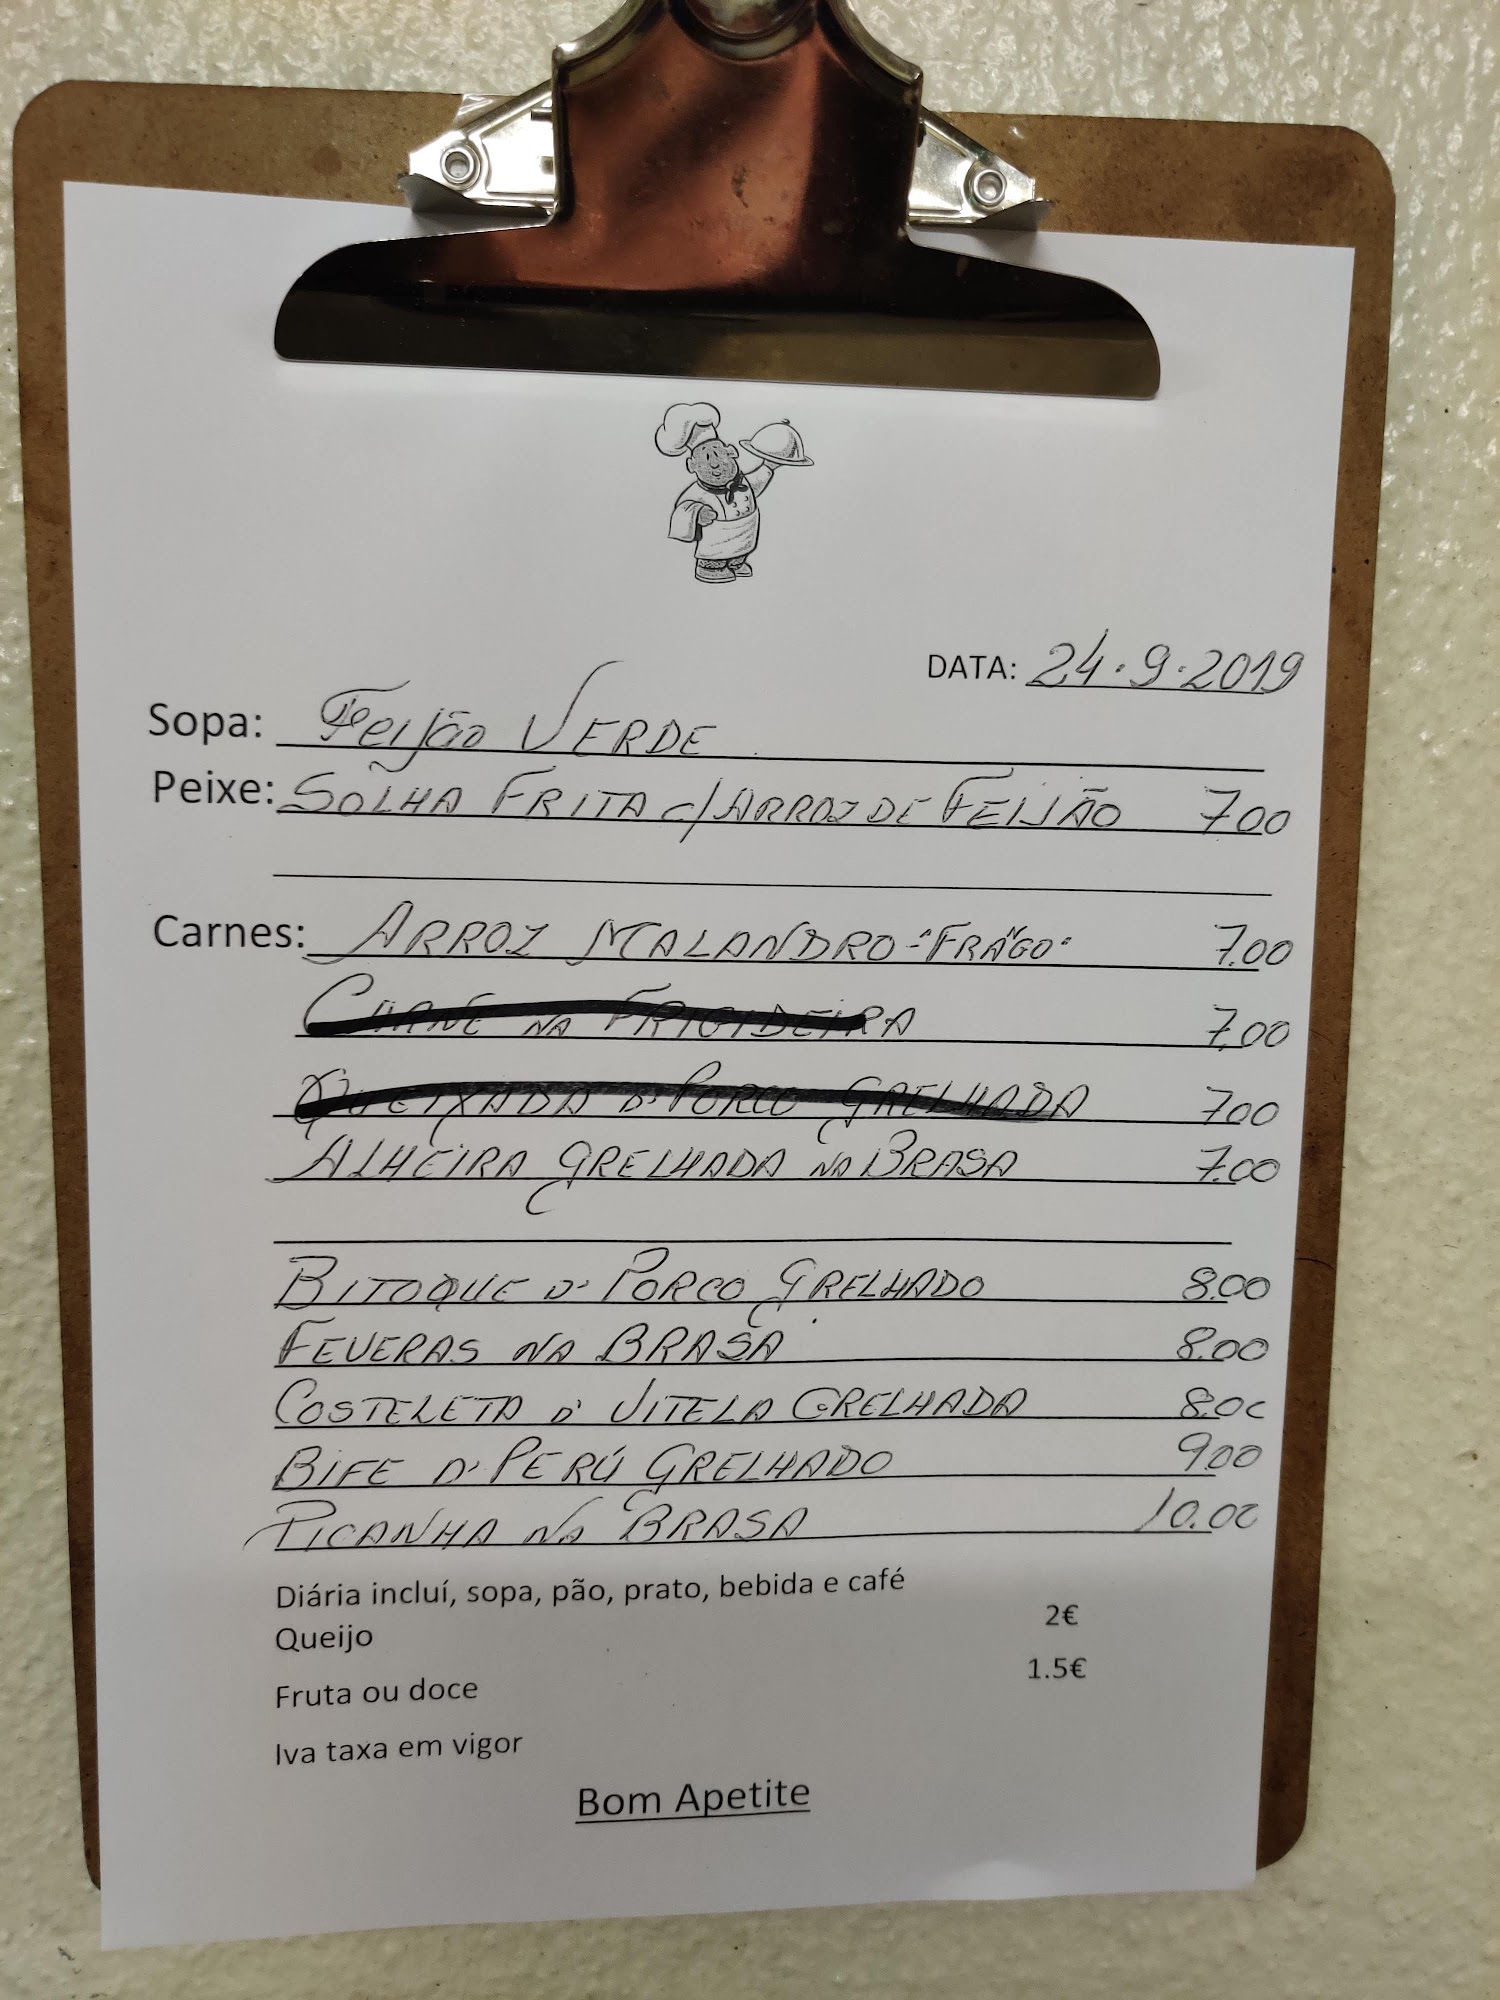 DATA: 24.9.2019
Sopa: Feijão VERDE
Peixe: SOLHA FRITA c/ARROZ DE FEIJÃO 7.00
Carnes: ARROZ MALANDRO - "FRAGO" 7.00
CARNE NA FRIGIDEIRA 7,00
QUEIXADA D' PORCO GRELHADA 7.00
ALHEIRA GRELHADA NA BRASA 7.00
BITOQUE D' PORCO GRELHADO 8.00
FEVERAS NA BRASA 8.00
COSTELETA D' VITELA GRELHADA 8.00
BIFE D' PERÚ GRELHADO 9.00
PICANHA NA BRASA 10.00
Diária incluí, sopa, pão, prato, bebida e café
Queijo 2€
Fruta ou doce 1.5€
Iva taxa em vigor
Bom Apetite